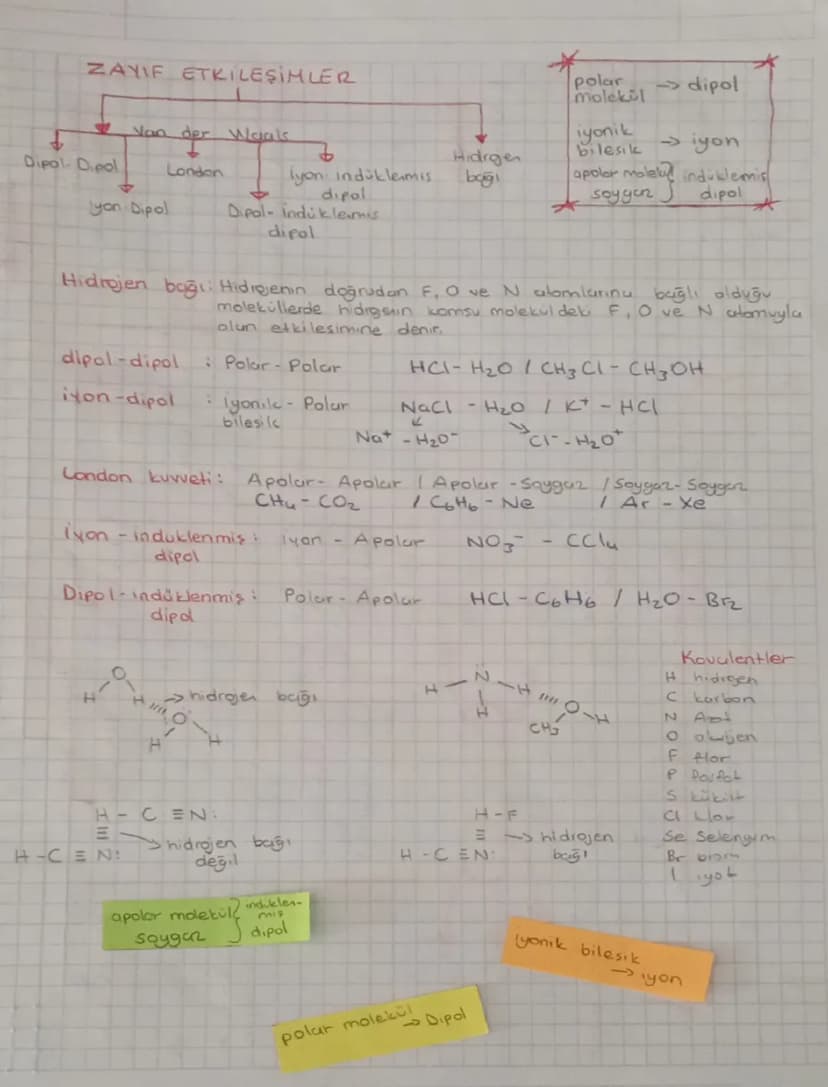 ZAYIF ETKİLEŞİMLER
Van der Waals
Dipol-Dipol
London
İyon indüklenmiş
dipol
Hidrojen
bağı
iyon Dipol
Dipol-indüklenmiş
dipol
polar
molekül → dipol
iyonik
bileşik → iyon
apolar molekül } indüklenmiş
soygaz dipol
Hidrojen bağı: Hidrojenin doğrudan F, O ve N atomlarına bağlı olduğu
moleküllerde hidrojenin komşu moleküldeki F, O ve N atomuyla
olan etkileşimine denir.
dipol-dipol : Polar-Polar HCl-H₂O / CH₃Cl - CH₃OH
iyon-dipol : iyonik-Polar NaCl - H₂O / K⁺ - HCl
bileşik
Na⁺ - H₂O⁻ Cl⁻ - H₂O⁺
London kuvveti: Apolar-Apolar / Apolar-Soygaz / Soygaz-Soygaz
CH₄-CO₂ / C₆H₆-Ne / Ar - Xe
iyon-indüklenmiş: iyon - Apolar NO₃⁻ - CCl₄
dipol
Dipol-indüklenmiş: Polar-Apolar HCl - C₆H₆ / H₂O - Br₂
dipol
O
H H → hidrojen bağı
O
H H
N
H H
H
O
CH₃ H
Kovalentler
H hidrojen
C karbon
N Azot
O oksijen
F flor
P fosfat
S kükürt
Cl klor
Se Selenyum
Br brom
I iyot
H - C ≡ N:
≡ → hidrojen bağı
değil
H - C ≡ N:
H - F
≡ → hidrojen
bağı
H - C ≡ N:
apolar molekül } indüklen-
miş
soygaz dipol
iyonik bileşik
→ iyon
polar molekül → Dipol